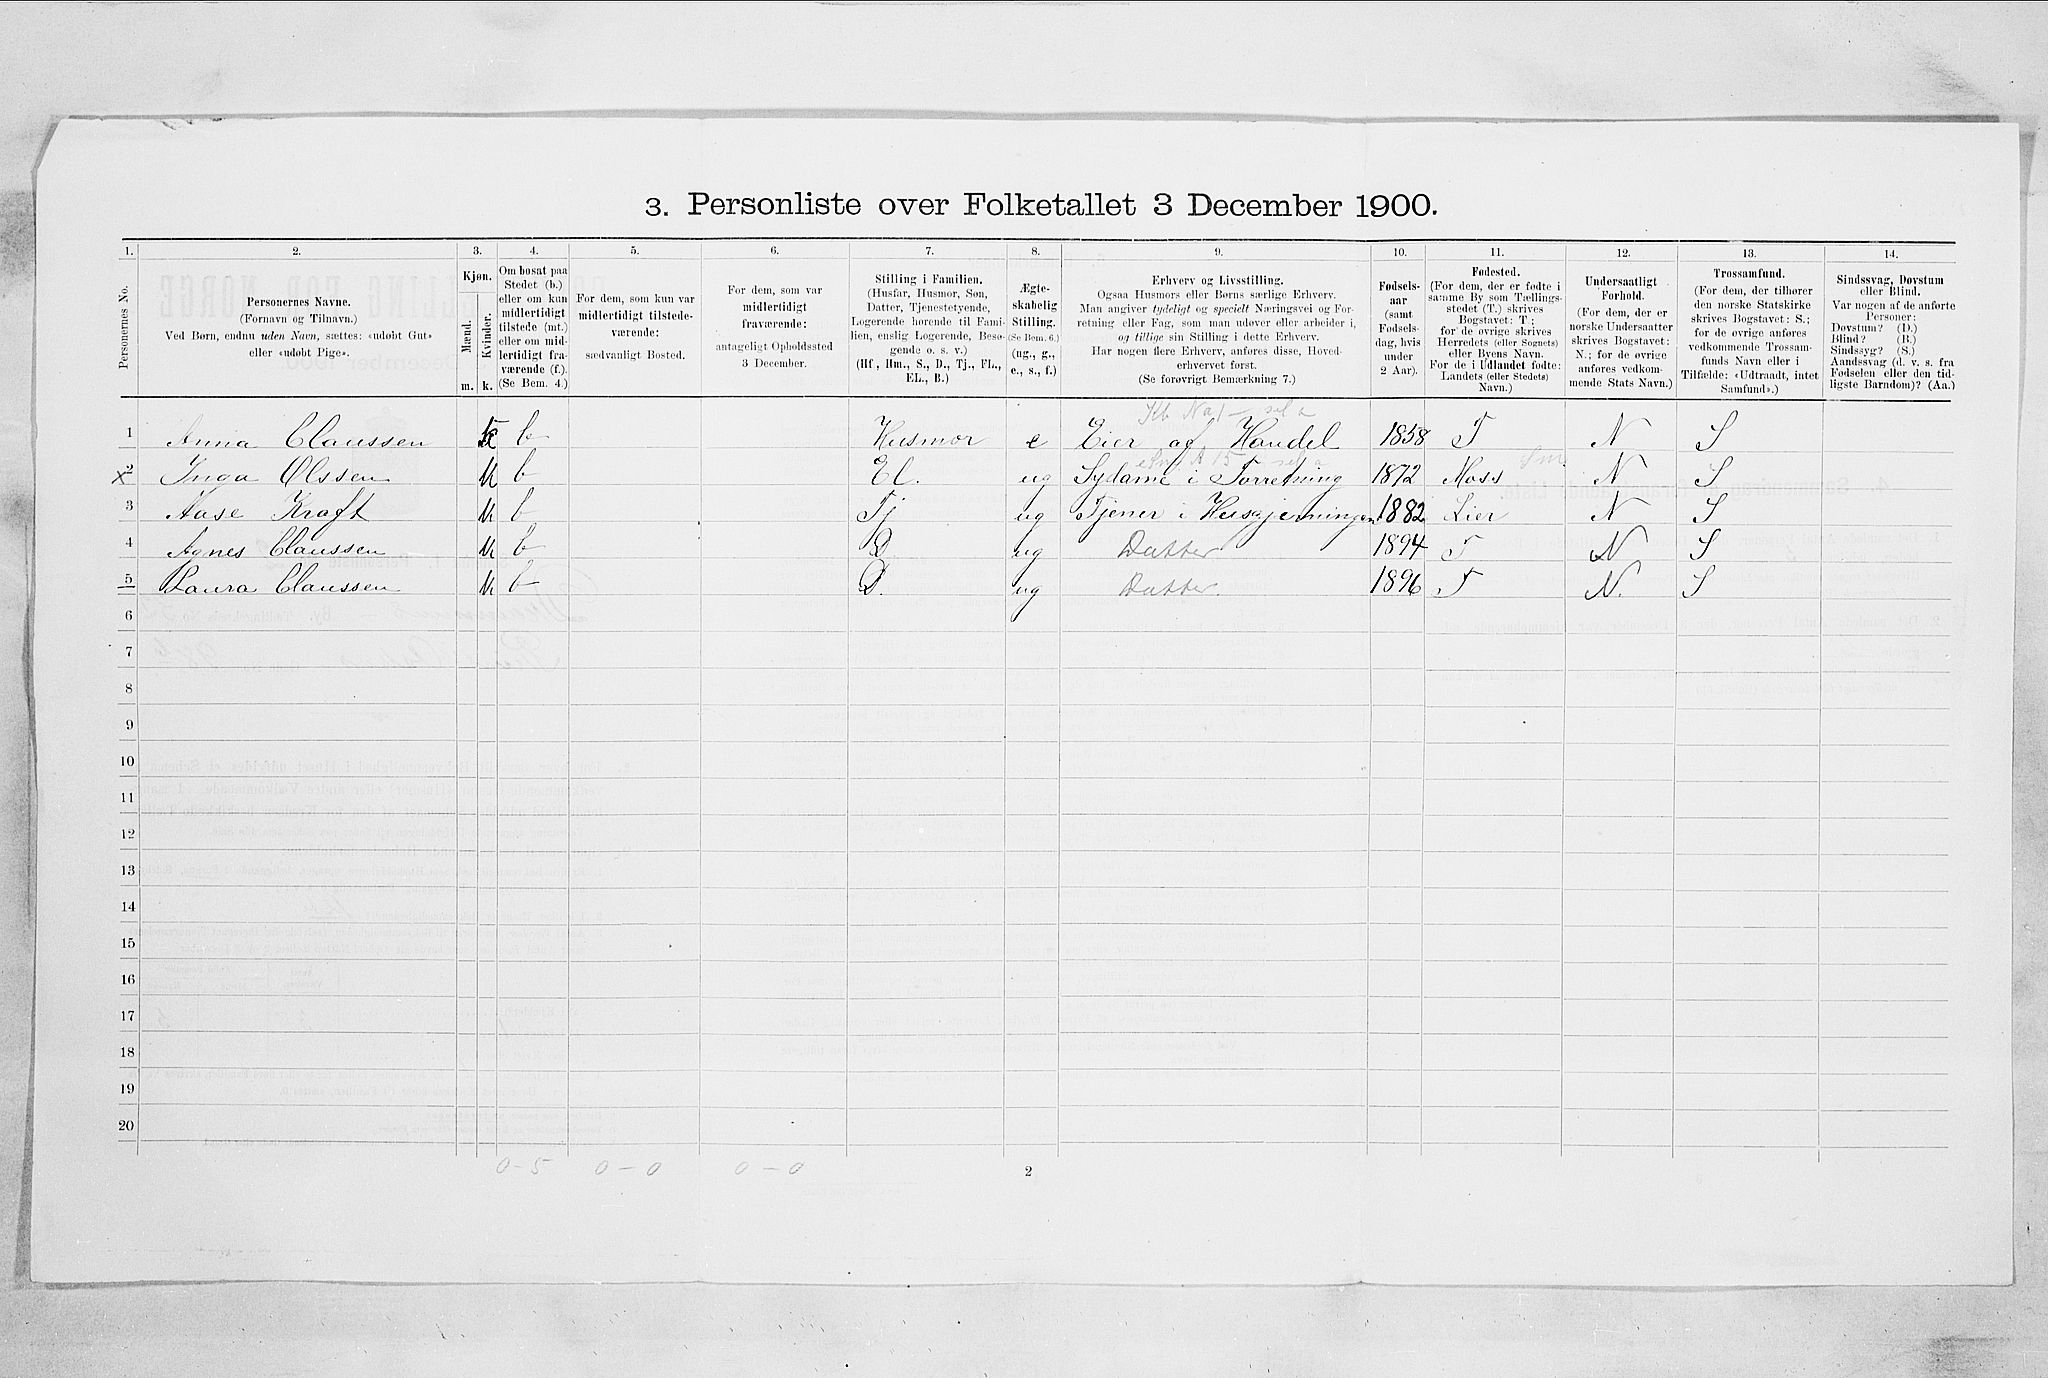 3. Personliste over Folketallet 3 December 1900.
1. 2. 3. 4. 5. 6. 7. 8. 9. 10. 11. 12. 13. 14.
Personernes No.
Personernes Navne.
(Fornavn og Tilnavn.)
Ved Børn, endnu uden Navn, sættes: «udøbt Gut»
eller «udøbt Pige».
Kjøn.
Mænd.
Kvinder.
m. k.
Om bosat paa
Stedet (b.)
eller om kun
midlertidigt
tilstede (mt.)
eller om mid-
lertidigt fra-
værende (f.).
(Se Bem. 4.)
For dem, som kun var
midlertidigt tilstede-
værende:
sædvanligt Bosted.
For dem, som var
midlertidigt
fraværende:
antageligt Opholdssted
3 December.
Stilling i Familien.
(Husfar, Husmor, Søn,
Datter, Tjenestetyende,
Logerende hørende til Fami-
lien, enslig Logerende, Besø-
gende o. s. v.)
(Hf., Hm., S., D., Tj., FL.,
EL., B.)
Ægte-
skabelig
Stilling.
(Se Bem. 6.)
(ug., g.,
e., s., f.)
Erhverv og Livsstilling.
Ogsaa Husmors eller Børns særlige Erhverv.
Man angiver tydeligt og specielt Næringsvei og For-
retning eller Fag, som man udøver eller arbeider i,
og tillige sin Stilling i dette Erhverv.
Har nogen flere Erhverv, anføres disse, Hoved-
erhvervet først.
(Se forøvrigt Bemærkning 7.)
Fødsels-
aar
(samt
Fødsels-
dag, hvis
under
2 Aar).
Fødested.
(For dem, der er fødte i
samme By som Tællings-
stedet (T.) skrives
Bogstavet: T;
for de øvrige skrives
Herredets (eller Sognets)
eller Byens Navn.
For de i Udlandet fødte:
Landets (eller Stedets)
Navn.)
Undersaatligt
Forhold.
(For dem, der er
norske Undersaatter
skrives Bogstavet:
N.; for de øvrige
anføres vedkom-
mende Stats Navn.)
Trossamfund.
(For dem, der tilhører
den norske Statskirke
skrives Bogstavet: S.;
for de øvrige anføres
vedkommende Trossam-
funds Navn eller i
Tilfælde: «Udtraadt, intet
Samfund».)
Sindssvag, Døvstum
eller Blind.
Var nogen af de anførte
Personer:
Døvstum? (D.)
Blind? (B.)
Sindssyg? (S.)
Aandssvag (d. v. s. fra
Fødselen eller den tid-
ligste Barndom)? (Aa.)
1 Anna Claussen k b Husmor e Eier af Handel 1858 T N S
x 2 Inga Olssen k b El. ug Sydame i Forretning 1872 Moss N S
3 Aase Kraft k b Tj ug Tjener i Husgjerningen 1882 Lier N S
4 Agnes Claussen k b D ug Datter 1894 T N S
5 Laura Claussen k b D. ug Datter. 1896 T N. S
6
7
8
9
10
11
12
13
14
15
16
17
18
19
20
0-5 0-0 0-0
2